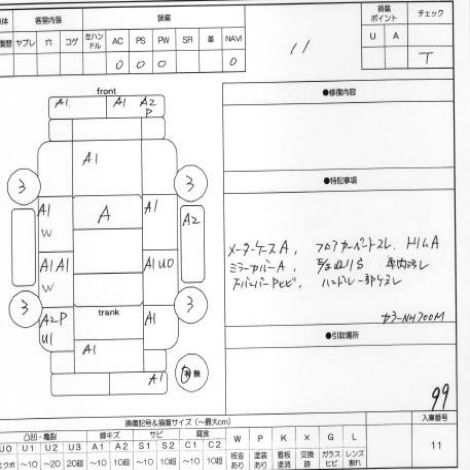 体 客室内張 装備 損傷ポイント チェック
復歴 ヤブレ 穴 コゲ 左ハンドル AC PS PW SR 革 NAVI U A
O O O O
11
T
front
A1 A1 A2
P
A1
3 3
A
A1 A1
W
A2
A1 A1 A1 U0
W
3 3
trank
A2 P A1
U1
A1
A1
有 無
●修復内容
●特記事項
メーターケースA、フロアカーペットスレ、
ミラーカバーA、車内汚レ
ハンドル一部ケズレ
カラーNH700M
●引取場所
99
損傷記号&損傷サイズ(～最大cm) 入庫番号
凸凹・亀裂 線キズ サビ 腐食
U0 U1 U2 U3 A1 A2 S1 S2 C1 C2 W P K X G L
エクボ ～10 ～20 20超 ～10 10超 ～10 10超 ～10 10超 板金あり 塗装あり 看板塗消 交換跡 ガラスヒビ レンズ割れ
11